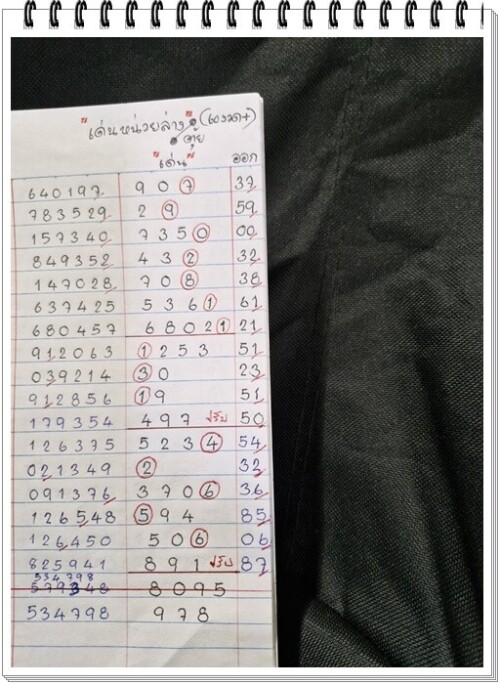 "เด่นหน่วยล่าง" (ของวด+)
ตุ้ย
"เด่น" ออก
640197 907 37
783529 29 59
157340 7350 00
849352 432 32
147028 708 38
637425 5361 61
680457 68021 21
912063 1253 51
039214 30 23
912856 19 51
179354 497 ปรับ 50
126375 5234 54
021349 2 32
091376 3706 36
126548 594 85
126450 506 06
825941 891 ปรับ 87
534798
579348 8095
534798 978